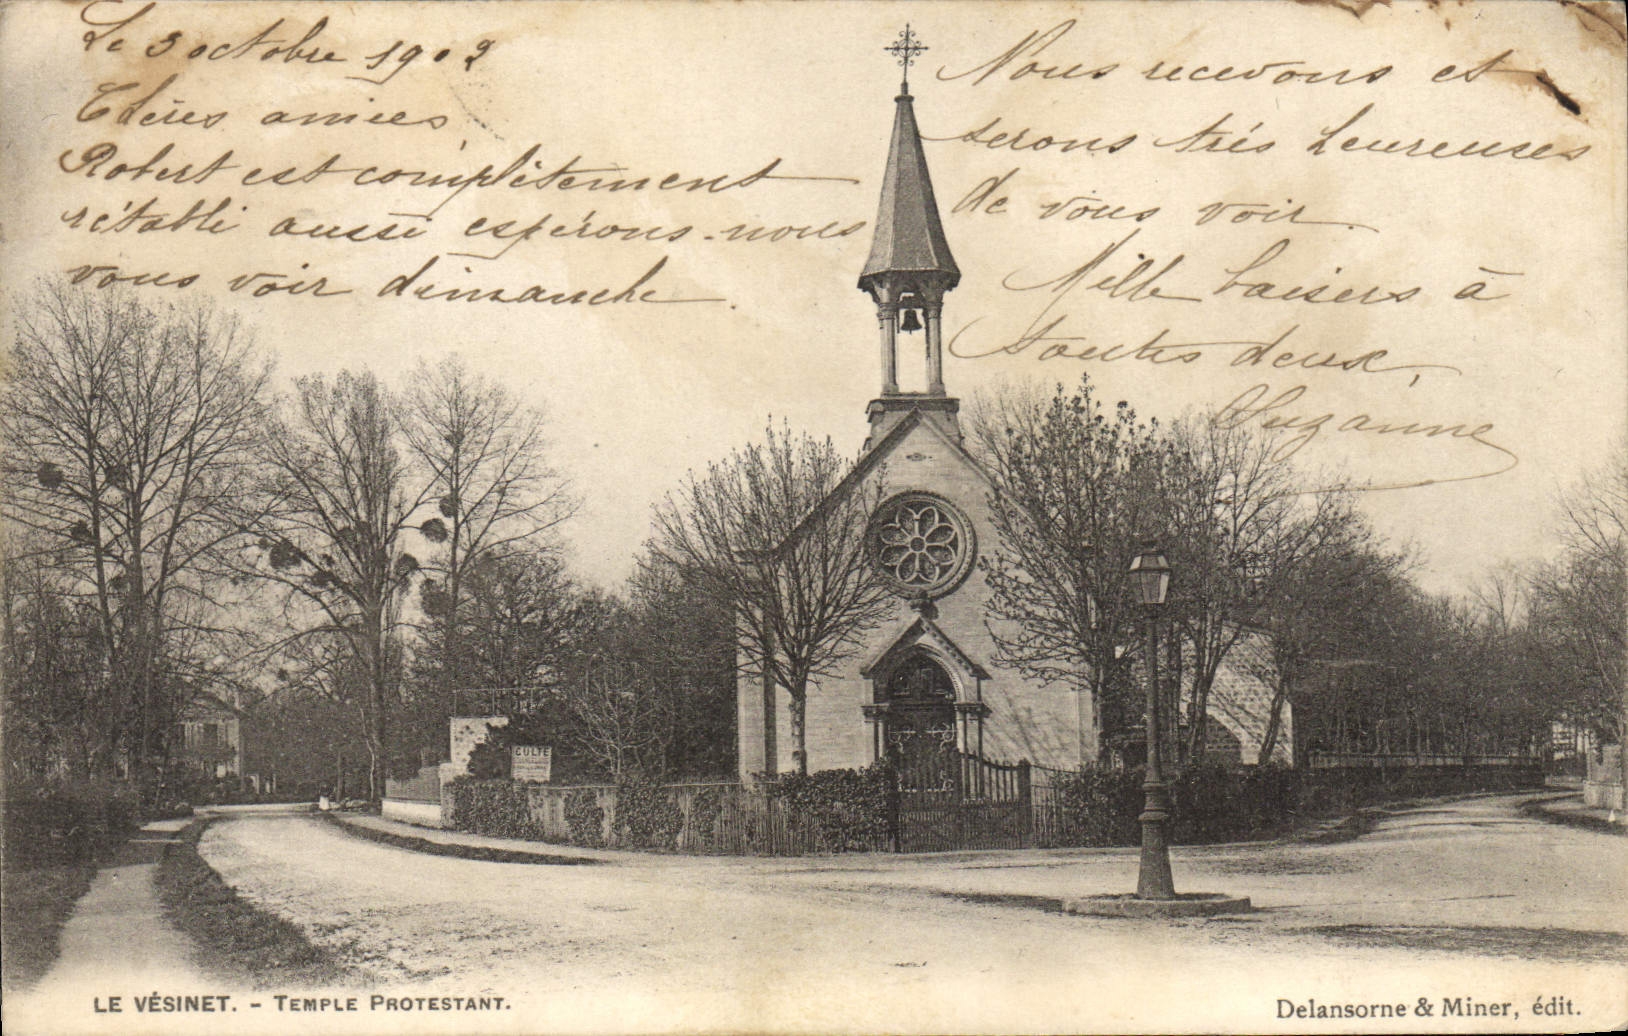 Le 3 octobre 1902
Chères amies,
Robert est complètement
rétabli aussi espérons-nous
vous voir dimanche.
Nous recevons et
serons très heureuses
de vous voir.
Mille baisers à
toutes deux,
Suzanne
CULTE
LE VÉSINET. - TEMPLE PROTESTANT.
Delansorne & Miner, édit.